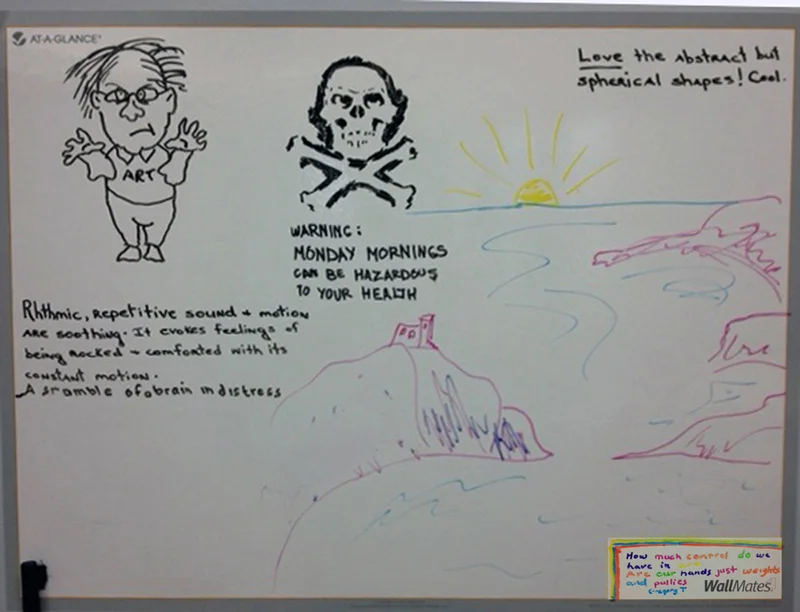 AT-A-GLANCE
Love the abstract but
spherical shapes! Cool.
ART
WARNING:
MONDAY MORNINGS
CAN BE HAZARDOUS
TO YOUR HEALTH
Rhthmic, repetitive sound + motion
are soothing. It evokes feelings of
being rocked + comforted with its
constant motion.
A sramble of a brain in distress
How much control do we
have in
Are our hands just weights
and pullies
Gregory T
WallMates.